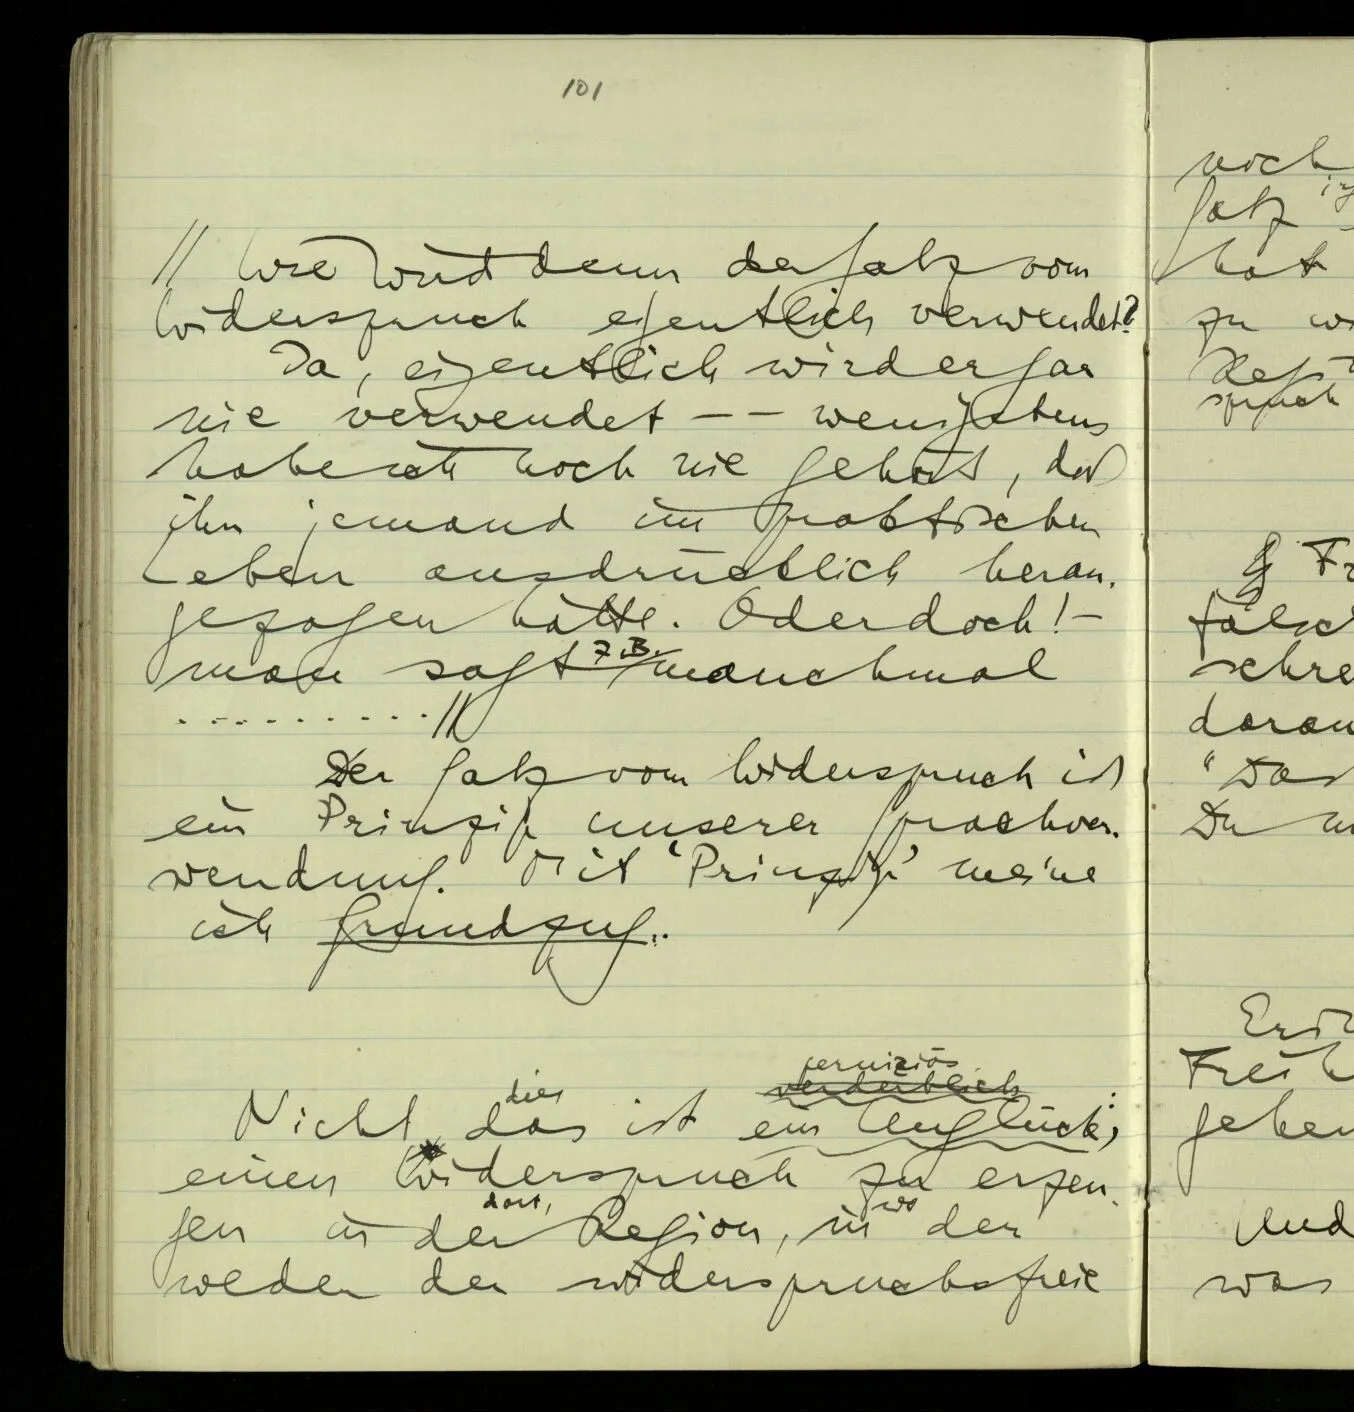 101
// Wie wird denn der Satz vom
Widerspruch eigentlich verwendet?
Ja, eigentlich wird er gar
nie verwendet – – wenigstens
habe ich noch nie gehört, daß
ihn jemand im praktischen
Leben ausdrücklich heran-
gezogen hätte. Oder doch! –
man sagt z.B. manchmal
..........//
Der Satz vom Widerspruch ist
ein Prinzip unserer Sprachver-
wendung. Mit 'Prinzip' meine
ich Grundzug.
perniziös
dies verderblich
Nicht das ist ein Unglück:
einen Widerspruch zu erzeu-
dort, wo
gen in der Region, in der
weder der widerspruchsfreie
noch
Satz
hat
zu
spruch
§
falsch
schre
daran
"Das
Du
geben
Und
was